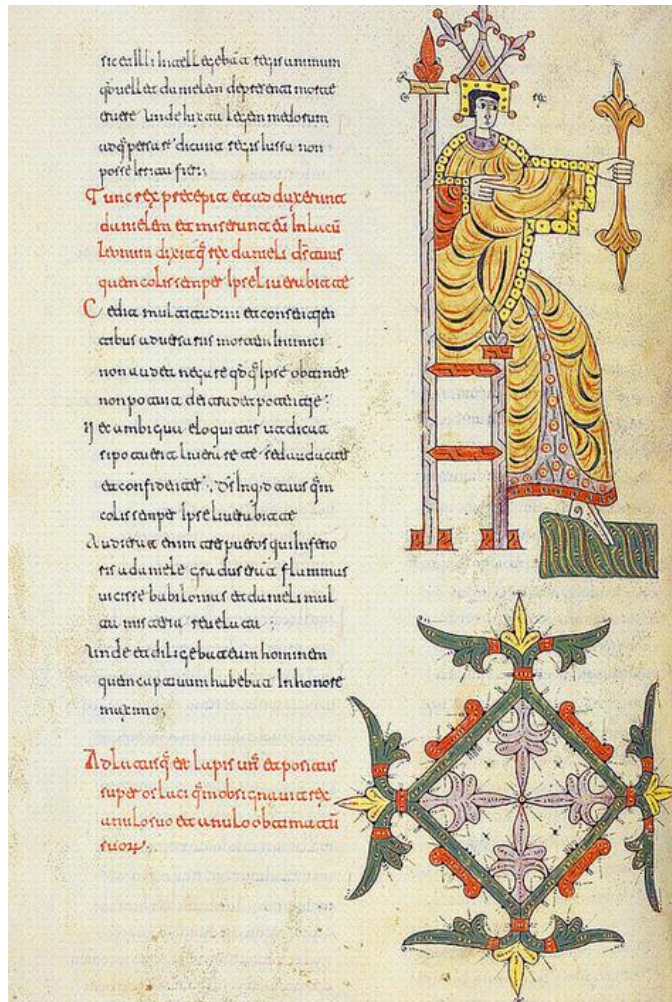 sicut illi intellegebant regis animum
qd uellet danielem de presenti morte
eruere unde iuxta legem medorum
adq persaru dicunt regis iussa non
posse irrita fieri
rex
Tunc rex precepit et adduxerunt
danielem et miserunt eu in lacū
leonum dixitq rex danieli ds tuus
quem colis semper ipse liuerabit te
Cedit multitudini et consentien
tibus aduersariis mortem inimici
non audet negare qdq ipse obtinere
non potuit dei tradet potentie
Nec ambigua eloquitur ut dicat
si potuerit liuerare te sed audacter
et confidenter ds inqd tuus qm
colis semper ipse liuerabit te
Audierat enim tres pueros qui inferio
ris a daniele gradus erant flammas
uicisse babilonias et danieli mul
ta misteria reuelata
Unde et diligebat eum hominem
quem captiuum habebat in honore
maximo
Adlatusq est lapis unus et positus
super os laci qm obsignauit rex
anulo suo et anulo obtimatū
suorum